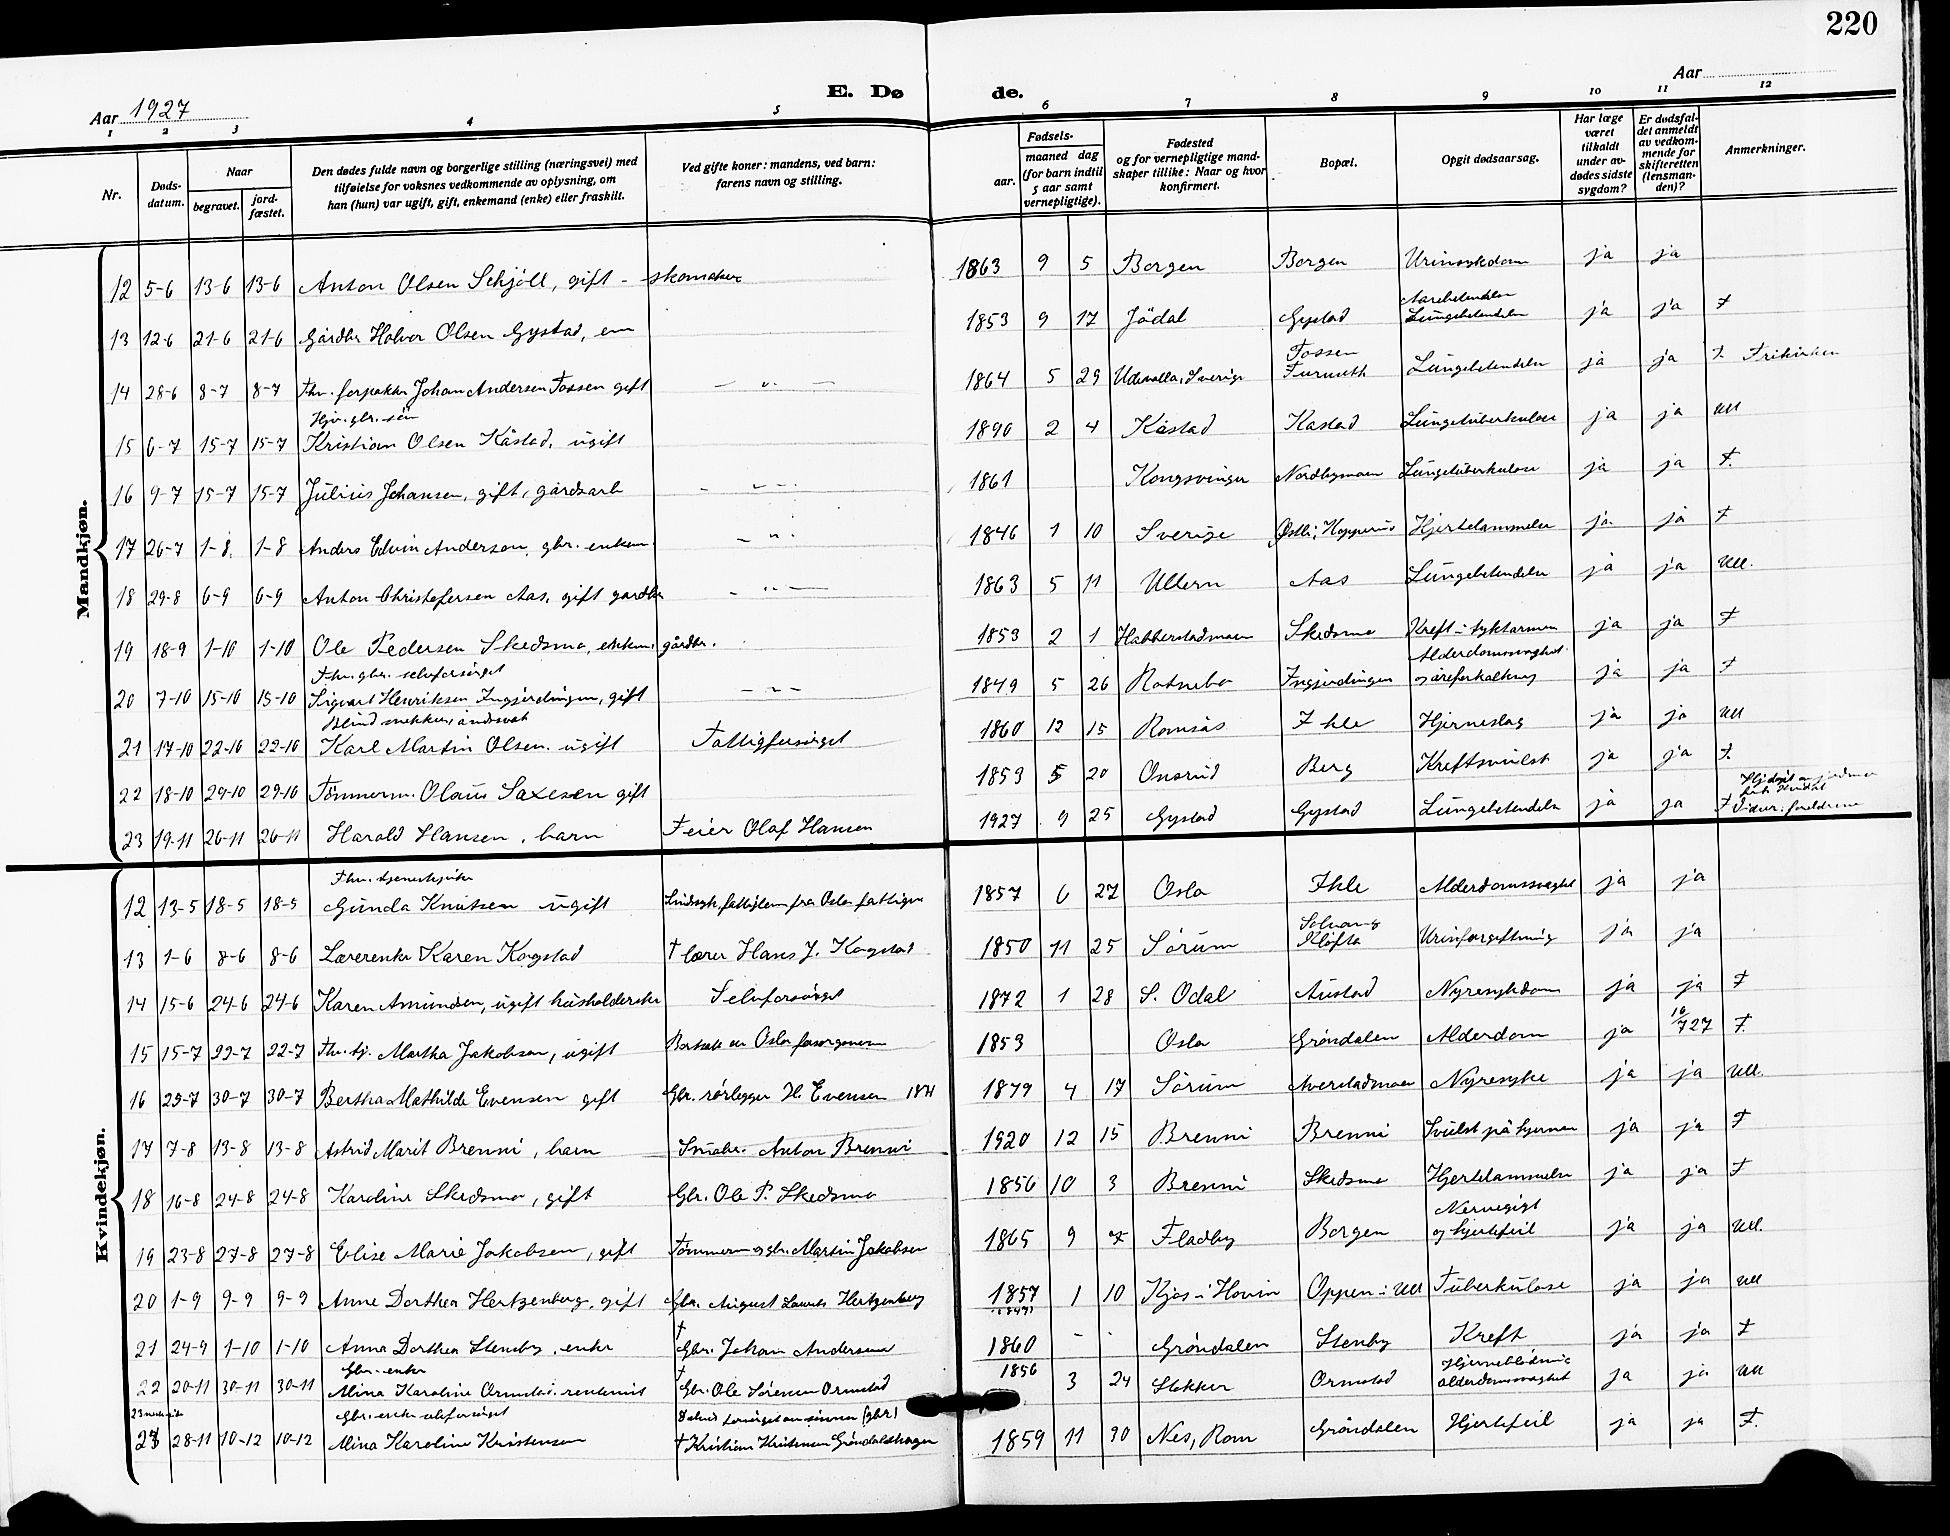 220
Aar 1927
E. Dø de.
Aar
1 2 3 4 5 6 7 8 9 10 11 12
Nr.
Døds-datum.
Naar
begravet.
jord-fæstet.
Den dødes fulde navn og borgerlige stilling (næringsvei) med
tilføielse for voksnes vedkommende av oplysning, om
han (hun) var ugift, gift, enkemand (enke) eller fraskilt.
Ved gifte koner: mandens, ved barn:
farens navn og stilling.
Fødsels-
aar.
maaned dag
(for barn indtil
5 aar samt
vernepligtige).
Fødested
og for vernepligtige mand-
skaper tillike: Naar og hvor
konfirmert.
Bopæl.
Opgit dødsaarsag.
Har læge
været
tilkaldt
under av-
dødes sidste
sygdom?
Er dødsfal-
det anmeldt
av vedkom-
mende for
skifteretten
(lensman-
den)?
Anmerkninger.
Mandkjøn.
12 5-6 13-6 13-6 Anton Olsen Schjöll, gift - skomaker 1863 9 5 Borgen Borgen Urinsykdom ja ja
13 12-6 21-6 21-6 Gårdbr Halvor Olsen Gystad, em 1853 9 17 Jödal Gystad Aarebetendelse Lungebetendelse ja ja F
14 28-6 8-7 8-7 Fhv. forpakter Johan Andersen Fossen gift - " - 1864 5 29 Udevalla, Sverige Fossen Furuseth Lungebetendelse ja ja F. Frikirken
Hjv. gbr. sön
15 6-7 15-7 15-7 Kristian Olsen Kåstad, ugift 1890 2 4 Kåstad Kåstad Lungetuberkulose ja ja Ull
16 9-7 15-7 15-7 Julius Johansen, gift, gårdsarb - " - 1861 Kongsvinger Nordbymoen Lungetuberkulose ja ja F.
17 26-7 1-8 1-8 Anders Edvin Anderson, gbr. enkem. - " - 1846 1 10 Sverige Østli, Hopperud Hjertelammelse ja ja F
18 29-8 6-9 6-9 Anton Christofersen Aas, gift gardbr - " - 1863 5 11 Ullern Aas Lungebetendelse ja ja Ull.
19 18-9 1-10 1-10 Ole Pedersen Skedsmo, enkem. gårdbr. 1853 2 1 Habberstadmoen Skedsmo Kreft i tyktarmen ja ja F
Fhv. gbr. selvforsörget
20 7-10 15-10 15-10 Sigvart Henriksen Ingjerdingen, gift - " - 1849 5 26 Rotnebo Ingjerdingen Alderdomssvaghet og åreforkalkning ja ja F
Blind snekker, åndssvak
21 17-10 22-10 22-10 Karl Martin Olsen. ugift Fattigforsörget 1860 12 15 Romsås Ihle Hjerneslag ja ja Ull
22 18-10 29-10 29-10 Tömmerm. Olaus Saxesen gift 1853 5 20 Onsrud Berg Kreftsvulst ja ja F.
23 19-11 26-11 26-11 Harald Hansen, barn Feier Olaf Hansen 1927 9 25 Gystad Gystad Lungebetendelse ja ja F
Kvindekjøn.
Fhv. tjenestepike
12 13-5 18-5 18-5 Gunda Knutsen ugift Sindsyk, fattiglem fra Oslo fattigv. 1857 6 27 Oslo Ihle Alderdomssvaghet ja ja
13 1-6 8-6 8-6 Lærerenke Karen Kogstad † lærer Hans J. Kogstad 1850 11 25 Sörum Solvang Klöfta Urinforgiftning ja ja
14 15-6 24-6 24-6 Karen Amundsen, ugift husholderske Selvforsörget 1872 1 28 S. Odal Austad Nyresykdom ja ja F
15 15-7 22-7 22-7 Fhv. tj. Martha Jakobsen, ugift Bortsatt av Oslo forsorgsvesen 1853 Oslo Gröndalen Alderdom ja 18/7 27 F.
16 25-7 30-7 30-7 Bertha Mathilde Evensen gift Gbr. rörlegger H. Evensen 1871 1879 4 17 Sörum Averstadmoen Nyresyke ja ja Ull.
17 7-8 13-8 13-8 Astrid Marit Brenni, barn Småbr. Anton Brenni 1920 12 15 Brenni Brenni Svulst på hjernen ja ja F
18 16-8 24-8 24-8 Karoline Skedsmo, gift Gbr. Ole P. Skedsmo 1856 10 3 Brenni Skedsmo Hjertelammelse ja ja F
19 23-8 27-8 27-8 Elise Marie Jakobsen, gift Tömmerm og gbr. Martin Jakobsen 1865 9 7 Fladby Borgen Nervegigt og hjertefeil ja ja Ull.
20 1-9 9-9 9-9 Anne Dorthea Hertzenberg, gift Gbr. August Laurits Hertzenberg 1857 (1847) 1 10 Kjos i Hovin Oppen i Ull Tuberkulose ja ja Ull
21 24-9 1-10 1-10 Anna Dorthea Stenby, enke † Gbr. Johan Andersen 1860 - - Gröndalen Stenby Kreft ja ja F
Gbr. enke
22 20-11 30-11 30-11 Mina Karoline Ormstad. rentenist † Gbr. Ole Sörensen Ormstad 1856 3 24 Slokker Ormstad Hjerneblödning alderdomssvaghet ja ja Ull
Gbr. enke selvforsörget
23 28-11 10-12 10-12 Mina Karoline Kristensen † Kristian Kristensen Gröndalshagen 1859 11 30 Nes, Rom Gröndalen Hjertefeil ja ja F.